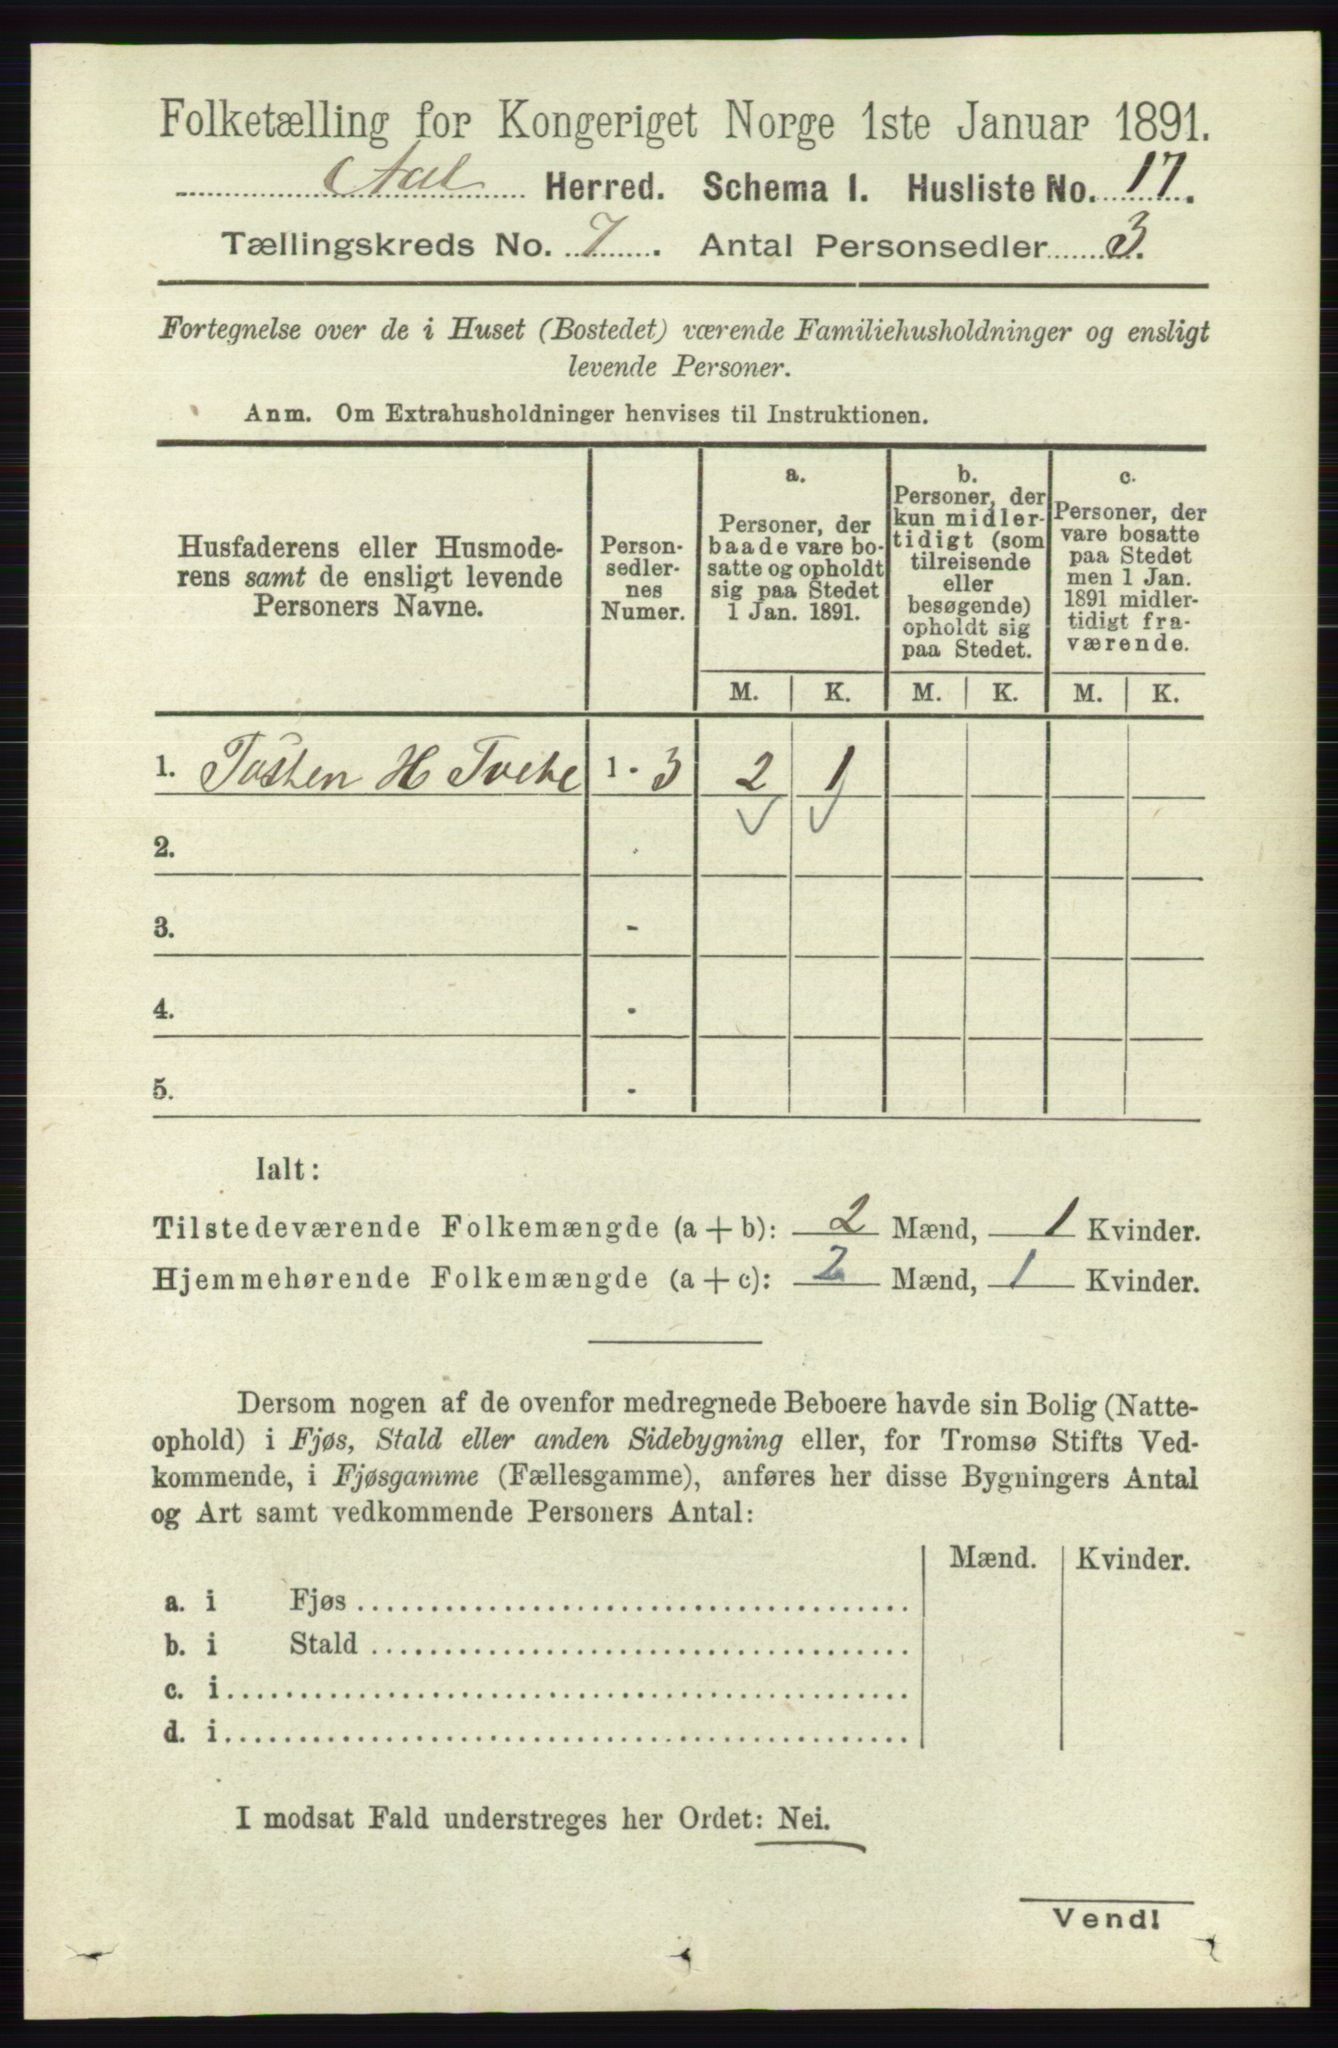 Folketælling for Kongeriget Norge 1ste Januar 1891.
Aal Herred. Schema I. Husliste No. 17.
Tællingskreds No. 7. Antal Personsedler 3.
Fortegnelse over de i Huset (Bostedet) værende Familiehusholdninger og ensligt
levende Personer.
Anm. Om Extrahusholdninger henvises til Instruktionen.
Husfaderens eller Husmode-
rens samt de ensligt levende
Personers Navne.
Person-
sedler-
nes
Numer.
a.
Personer, der
baade vare bo-
satte og opholdt
sig paa Stedet
1 Jan. 1891.
b.
Personer, der
kun midler-
tidigt (som
tilreisende
eller
besøgende)
opholdt sig
paa Stedet.
c.
Personer, der
vare bosatte
paa Stedet
men 1 Jan.
1891 midler-
tidigt fra-
værende.
M. K. M. K. M. K.
1. H 1 - 3 2 1
2.
3. -
4. -
5. -
Ialt:
Tilstedeværende Folkemængde (a + b): 2 Mænd, 1 Kvinder.
Hjemmehørende Folkemængde (a + c): 2 Mænd, 1 Kvinder.
Dersom nogen af de ovenfor medregnede Beboere havde sin Bolig (Natte-
ophold) i Fjøs, Stald eller anden Sidebygning eller, for Tromsø Stifts Ved-
kommende, i Fjøsgamme (Fællesgamme), anføres her disse Bygningers Antal
og Art samt vedkommende Personers Antal:
Mænd. Kvinder.
a. i Fjøs
b. i Stald
c. i
d. i
I modsat Fald understreges her Ordet: Nei.
Vend!